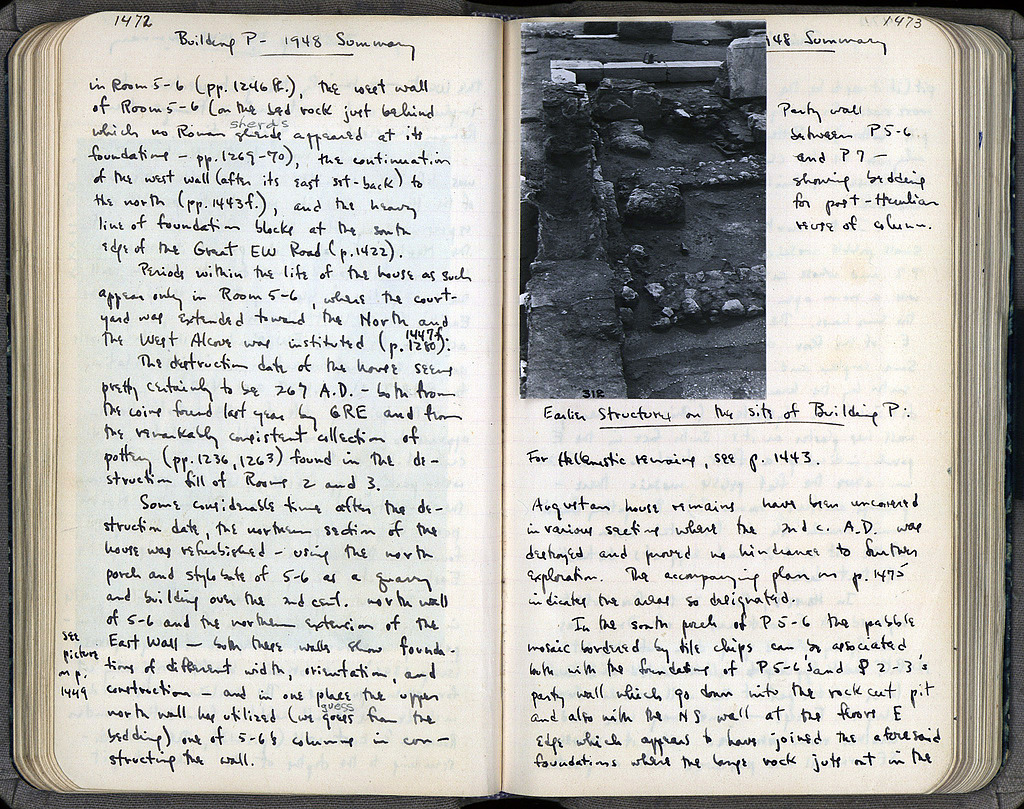 1472
Building P - 1948 Summary
in Room 5-6 (pp. 1246 ff.), the west wall
of Room 5-6 (on the bed rock just behind
which no Roman sherds appeared at its
sherds
foundations - pp. 1269-70), the continuation
of the west wall (after its east set-back) to
the north (pp. 1443f.), and the heavy
line of foundation blocks at the south
edge of the Great EW Road (p. 1422).
Periods within the life of the house as such
appear only in Room 5-6, where the court-
yard was extended toward the North and
the West Alcove was instituted (p. 1280).
1447f.
The destruction date of the house seems
pretty certainly to be 267 A.D. - both from
the coins found last year by GRE and from
the remarkably consistent collection of
pottery (pp. 1236, 1263) found in the de-
struction fill of Rooms 2 and 3.
Some considerable time after the de-
struction date, the northern section of the
house was refurbished - using the north
porch and stylobate of 5-6 as a quarry
and building over the 2nd cent. north wall
of 5-6 and the northern extension of the
East Wall - both these walls show founda-
tions of different width, orientation, and
construction - and in one place the upper
north wall has utilized (we guess from the
guess
bedding) one of 5-6's columns in con-
structing the wall.
see
picture
on p.
1449
1473
948 Summary
Party wall
between P 5-6
and P 7 -
showing bedding
for post-Herulian
reuse of column.
312
Earlier Structures on the site of Building P:
For Hellenistic remains, see p. 1443.
Augustan house remains have been uncovered
in various sections where the 2nd c. A.D. was
destroyed and proved no hindrance to further
exploration. The accompanying plan on p. 1475
indicates the areas so designated.
In the south porch of P 5-6 the pebble
mosaic bordered by tile chips can be associated
both with the foundations of P 5-6's and P 2-3's
party wall which go down into the rock cut pit
and also with the NS wall at the floor's E
edge which appears to have joined the aforesaid
foundations where the large rock juts out in the